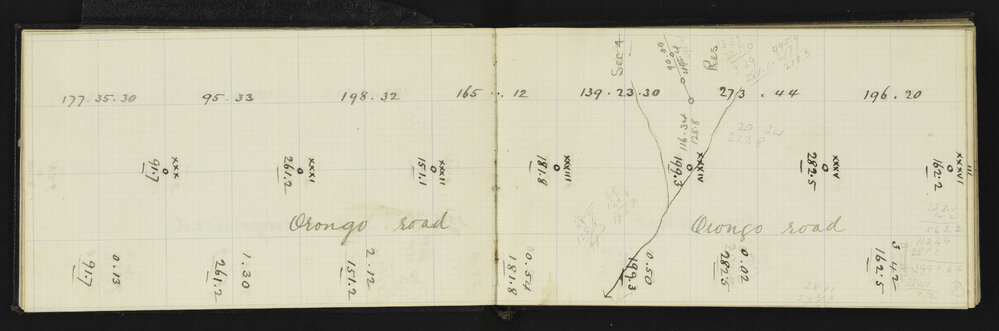 177.35.30 95.33 198.32 165 .. 12 139.23.30 273.44 196.20
Sec 4
Res
90.00
116.34
128.8
XXX
91.7
XXXI
261.2
XXXII
151.1
XXXIII
181.8
XXXIV
199.3
XXXV
282.5
XXXVI
162.2
Orongo road
Orongo road
0.13
91.7
1.30
261.2
2.12
151.2
0.54
181.8
0.50
199.3
0.02
282.5
3.42
162.5